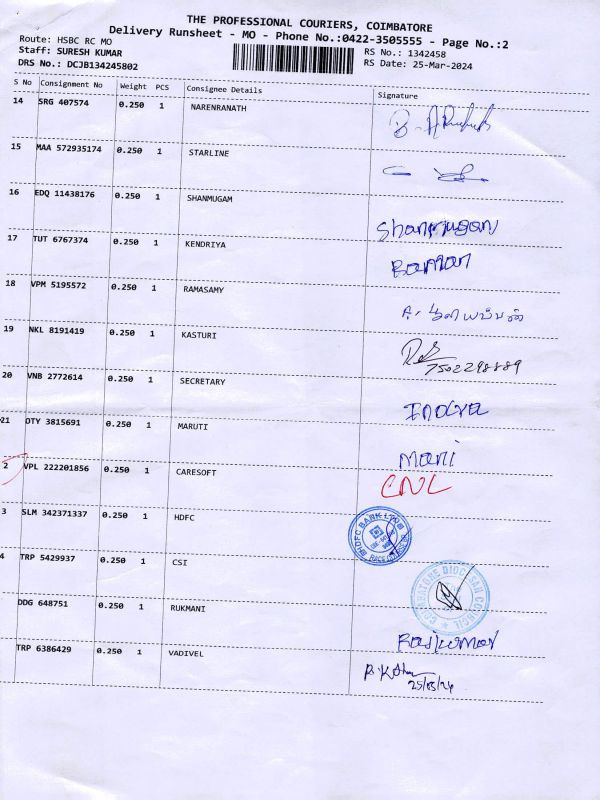 THE PROFESSIONAL COURIERS, COIMBATORE
Delivery Runsheet - MO - Phone No.:0422-3505555 - Page No.:2
Route: HSBC RC MO
RS No.: 1342458
Staff: SURESH KUMAR
RS Date: 25-Mar-2024
DRS No.: DCJB134245802
S No Consignment No Weight PCS Consignee Details Signature
14 SRG 407574 0.250 1 NARENRANATH
15 MAA 572935174 0.250 1 STARLINE
16 EDQ 11438176 0.250 1 SHANMUGAM Shanmugam
17 TUT 6767374 0.250 1 KENDRIYA
18 VPM 5195572 0.250 1 RAMASAMY
19 NKL 8191419 0.250 1 KASTURI
7502298889
20 VNB 2772614 0.250 1 SECRETARY
21 OTY 3815691 0.250 1 MARUTI Mani
2 VPL 222201856 0.250 1 CARESOFT CNL
3 SLM 342371337 0.250 1 HDFC HDFC BANK LTD
4 TRP 5429937 0.250 1 CSI COIMBATORE DIOCESAN COUNCIL
DDG 648751 0.250 1 RUKMANI Rajkumar
TRP 6386429 0.250 1 VADIVEL
25/03/24